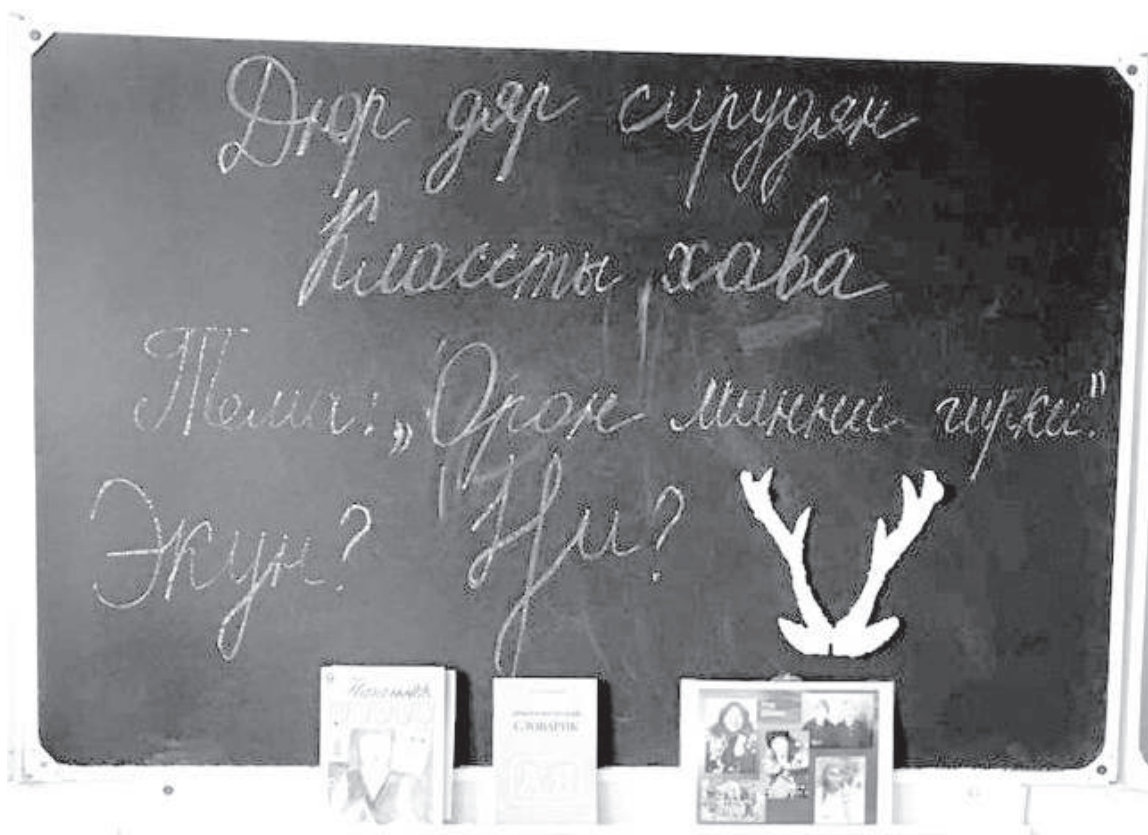 Дюр дяр сирудян
Классты хава
Тема: „Орон минни гирки."
Экун? Ӈи?
СЛОВАРИК